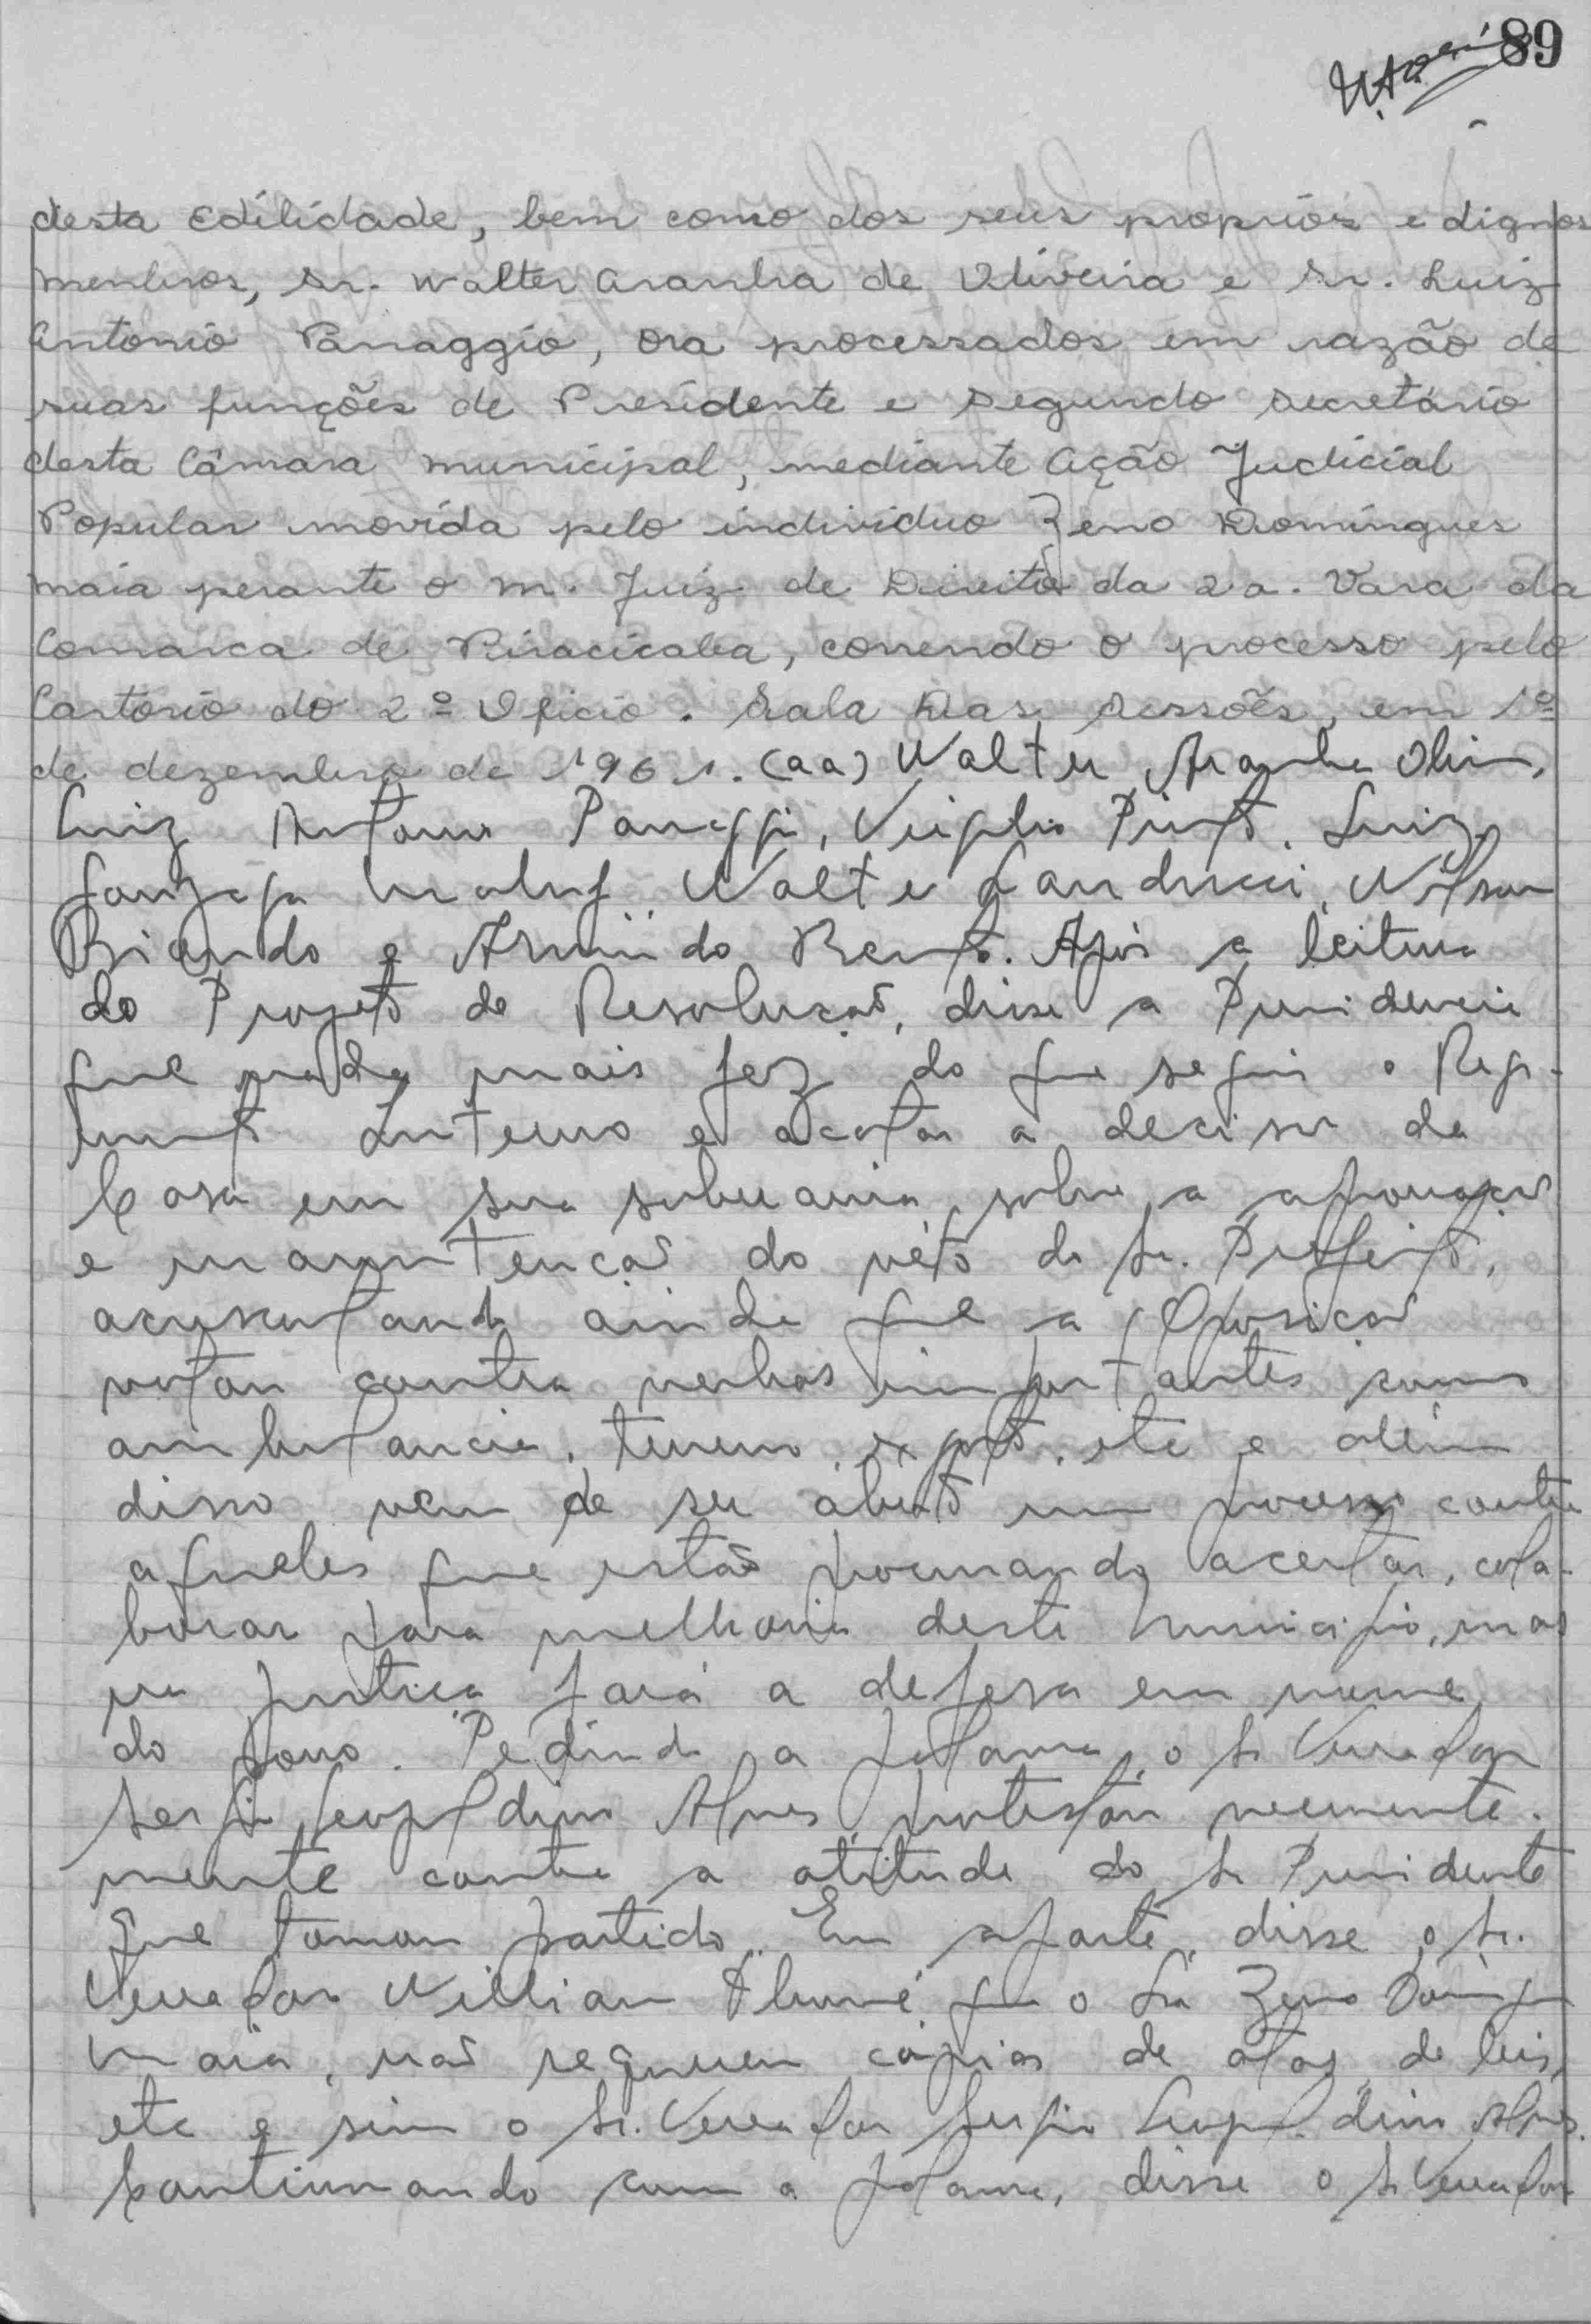 89
desta Edilidade, bem como dos seus proprios e dignos
membros, Sr. Walter Aranha de Oliveira e Sr. Luiz
Antonio Panaggio, ora processados em razão de
suas funções de Presidente e Segundo Secretário
desta Câmara Municipal, mediante Ação Judicial
Popular movida pelo individuo Zeno Domingues
Maia perante o M. Juiz de Direito da 2a. Vara da
Comarca de Piracicaba, correndo o processo pelo
Cartorio do 2º Oficio. Sala Das Sessões, em 1º
de dezembro de 1961. (aa) Walter Aranha Oliv.
Luiz Antonio Panaggio, Virgilio Pinto, Luiz
Gonzaga Maluf, Walter Landucci, Wilson
e Armindo Bento. Após a leitura
do Projeto de Resolução, disse a Presidencia
que nada mais fez do que seguir o Regi-
mento Interno e acatar a decisão da
Casa em sua soberania, sobre a aprovação
e manutenção do véto do Sr. Prefeito,
acrescentando ainda que a Oposição
votou contra verbas importantes como
ambulancia, terreno, etc e além
disso vem de ser aberto um processo contra
aqueles que estão procurando acertar, cola-
borar para melhoria deste Municipio, mas
na justiça fará a defesa em nome
do povo. Pedindo a palavra, o Sr Vereador
Sergio Leopoldino Alves, protestou veemente-
mente contra a atitude do Sr Presidente
que tomou partido. Em aparte, disse o Sr.
Vereador Willian que o Sr Zeno Domingues
Maia, não requereu cópias de atas, de leis,
etc e sim o Sr. Vereador Sergio Leopoldino Alves.
Continuando com a palavra, disse o Sr Vereador